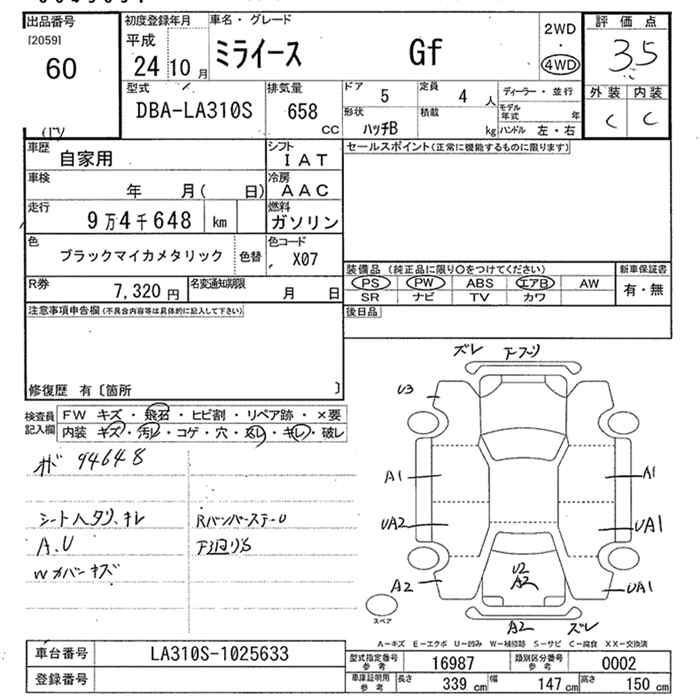 出品番号
[2059]
60
初度登録年月
平成
24年10月
車名・グレード
ミライース Gf
2WD
・
4WD
評価点
3.5
外装 内装
C C
型式
DBA-LA310S
排気量
658
CC
ドア 5
定員 4 人
形状
ハッチB
積載
kg
ディーラー・並行
モデル年式 年
ハンドル 左・右
車歴
自家用
シフト
IAT
車検
年 月( 日)
冷房
AAC
走行
9万4千648 km
燃料
ガソリン
色
ブラックマイカメタリック
色替
色コード
X07
R券
7,320円
名変通知期限
月 日
セールスポイント(正常に機能するものに限ります)
装備品 (純正品に限り○をつけてください)
PS PW ABS エアB AW
SR ナビ TV カワ
新車保証書
有・無
後日品
注意事項申告欄(不具合内容等は具体的に記入して下さい)
修復歴 有〔箇所 〕
検査員記入欄
FW キズ・飛石・ヒビ割・リペア跡・×要
内装 キズ・汚レ・コゲ・穴・スレ・キレ・破レ
94648
シートヘタリ、キレ
RバンパーステーU
A.U
下回りS
Wカバーキズ
ズレ
U3
A1
A1
UA2
UA1
A2
U2
A2
UA1
A2
ズレ
スペア
A－キズ E－エクボ U－凹み W－補修跡 S－サビ C－腐食 XX－交換済
車台番号
LA310S-1025633
登録番号
型式指定番号参考
16987
類別区分番号参考
0002
車庫証明用参考
長さ 339 cm
幅 147 cm
高さ 150 cm